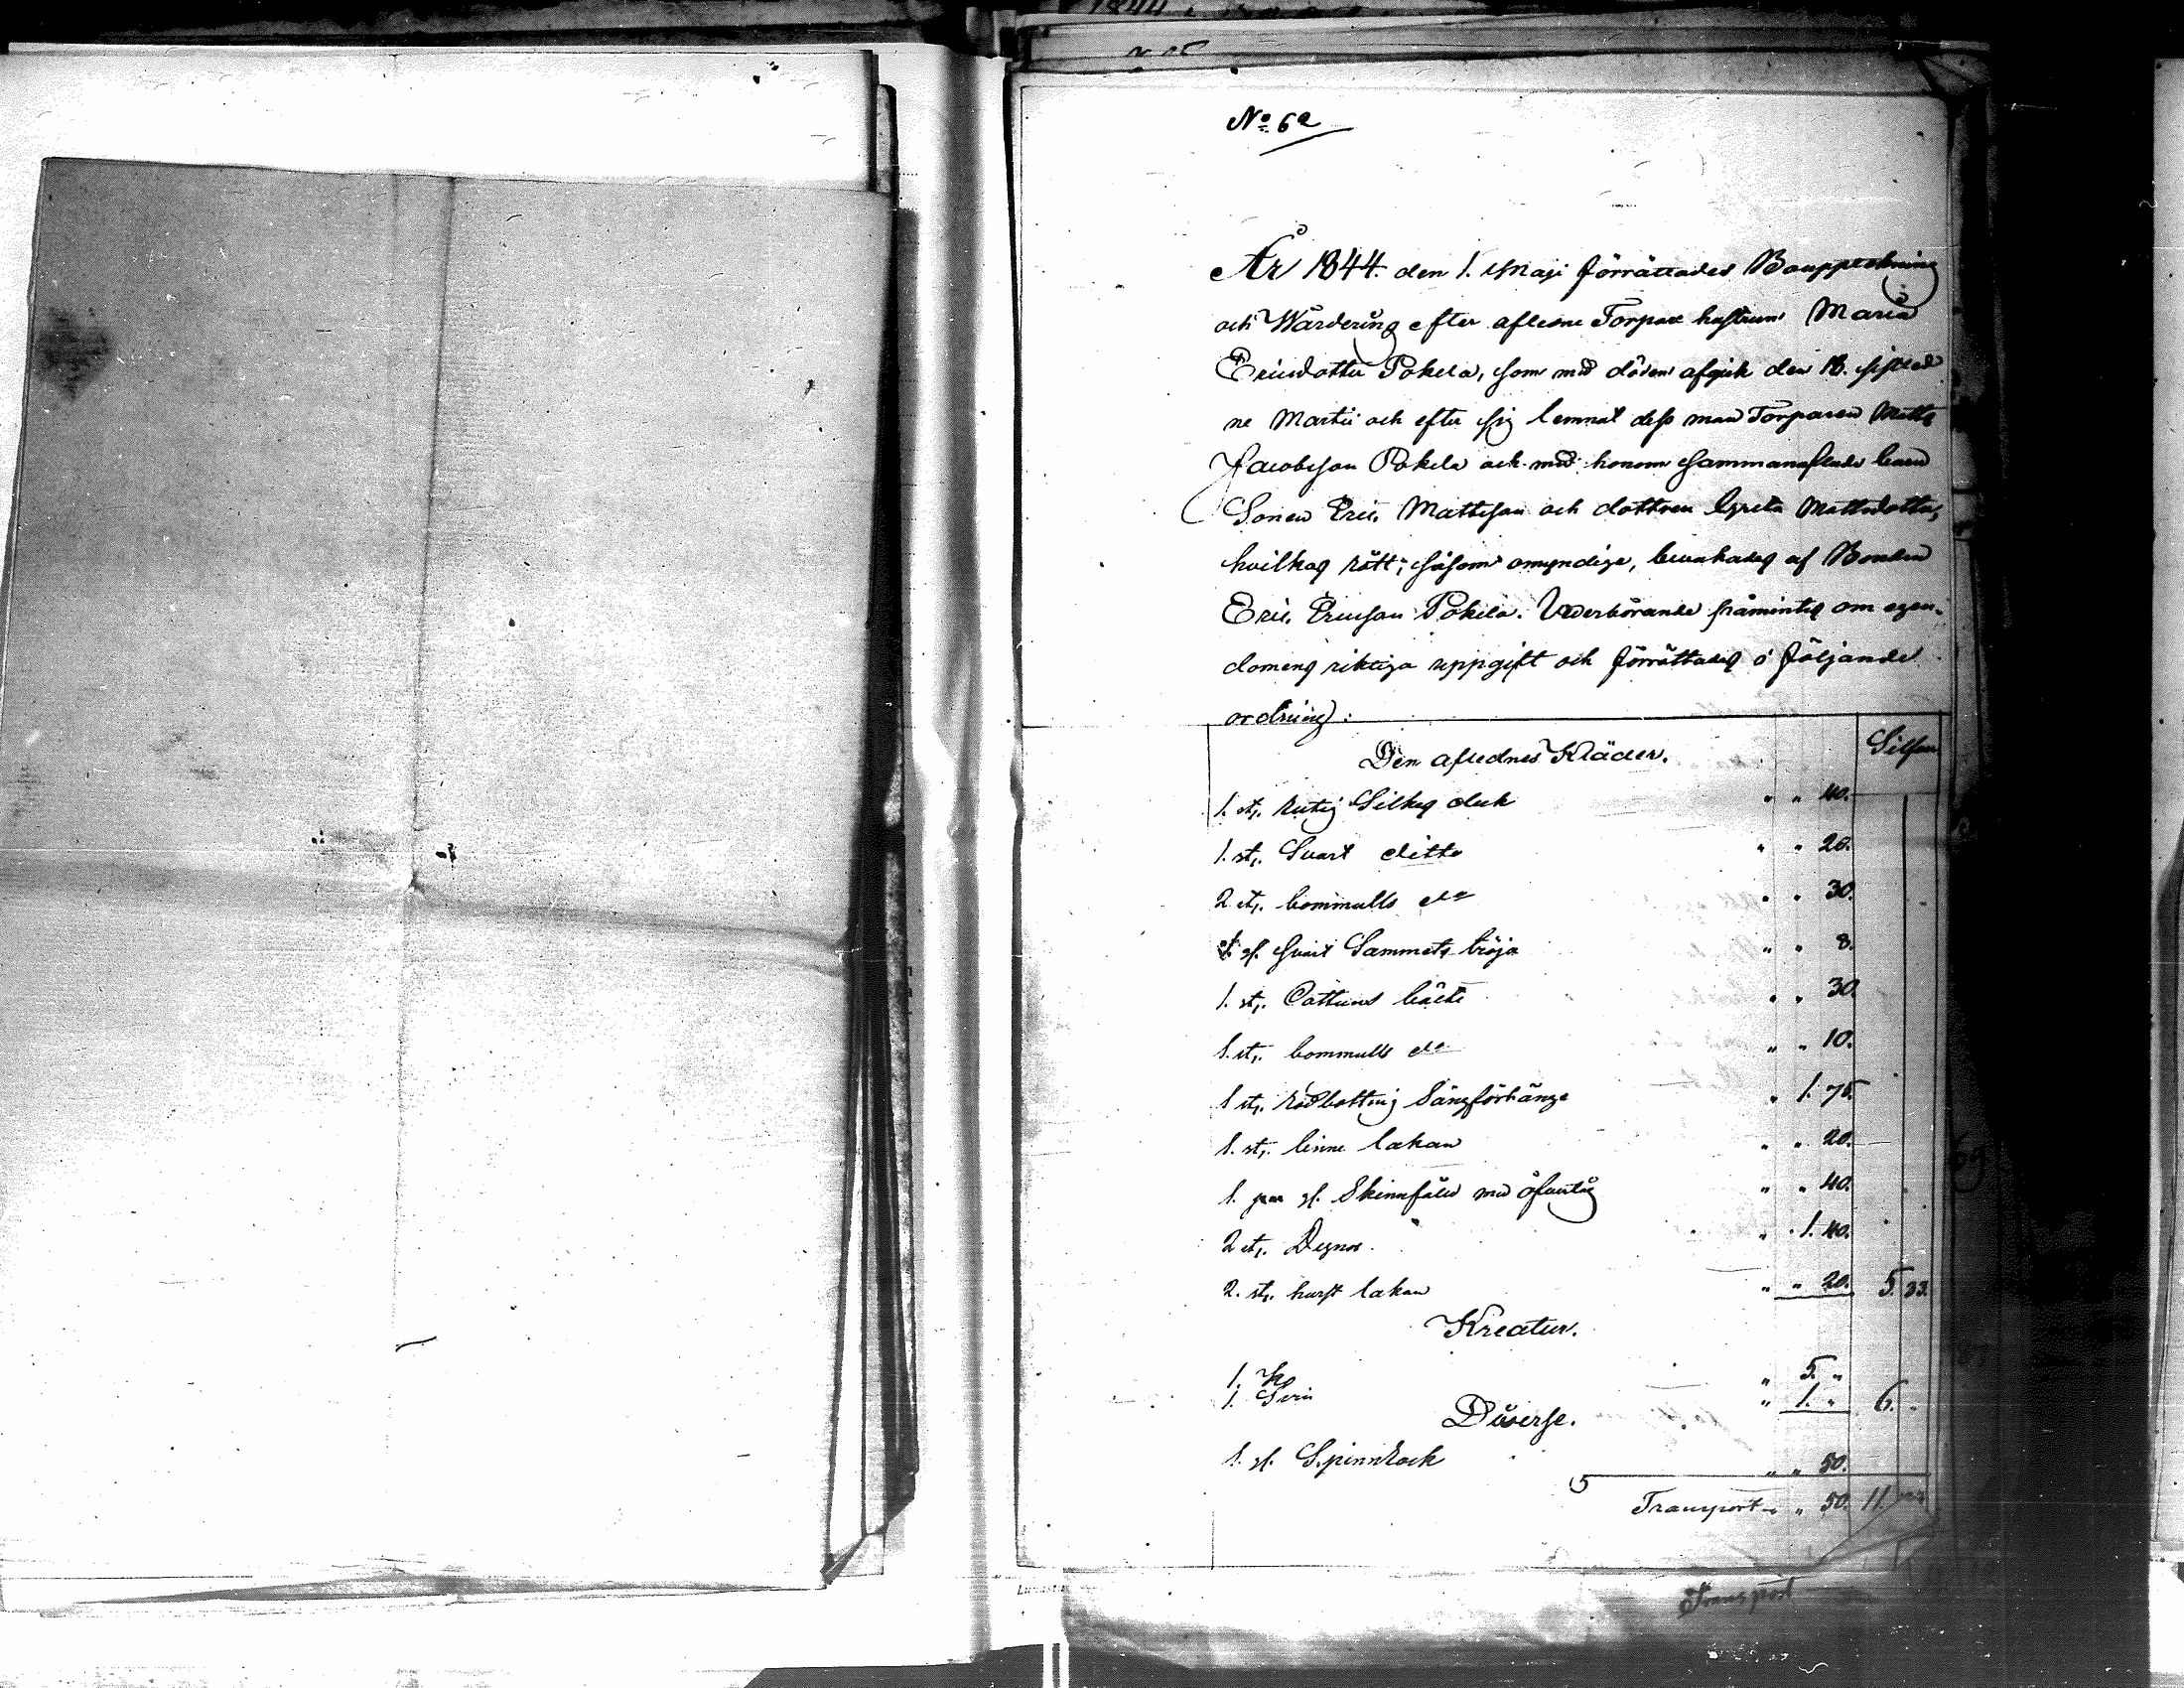 No 62
År 1844. den 1. Maji förrättades Boupptekning
och Wärdering efter afledne Torpare hustrun Maria
Ericsdotter Pokela, som med döden afgick den 18. sistled
ne Martii och efter sig lemnat dess man Torparen Matts
Jacobsson Pokela och med honom sammanaflade barn
Sonen Eric Mattsson och dottren Greta Mattsdotter,
hvilkas rätt, såsom omyndige, bevakades af Bonden
Eric Ericsson Pokela. Vederbörande påmintes om egen-
domens riktiga uppgift och förrättades i följande
ordning:
Silfver
Den aflednes Kläder.
1. st. rutig Silkes duk " " 40.
1. st. Svart ditto " " 20.
2 st. bommulls do " " 30.
1. gl. svart Sammets tröja " " 8.
1. st. Cattuns " " 30.
1. st. bommulls do " " 10.
1 st. Sängförhänge " 1. 75.
1. st. linne lakan " " 20.
1. par gl. Skinnfäll med " " 40.
2 st. Dynor " 1. 40.
2. st. lakan " " 20. 5. 33.
Kreatur.
1. Ko " 5. "
1. Svin " 1. " 6. "
Diverse.
1. gl. Spinnrock " " 50.
Transport " " 50. 11.
Transport